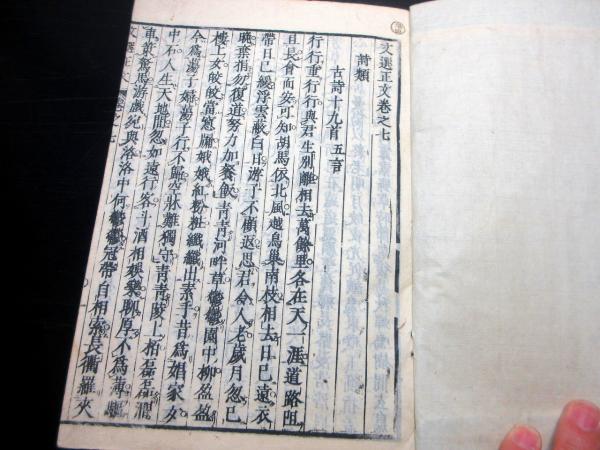 文選正文卷之七
詩類
古詩十九首五言
行行重行行與君生別離相去萬餘里各在天一涯道路阻
且長會面安可知胡馬依北風越鳥巢南枝相去日已遠衣
帶日已緩浮雲蔽白日游子不顧返思君令人老歲月忽已
晚棄捐勿復道努力加餐飯青青河畔草鬱鬱園中柳盈盈
樓上女皎皎當窻牖娥娥紅粉粧纖纖出素手昔為娼家女
今為蕩子婦蕩子行不歸空牀難獨守青青陵上柏磊磊澗
中石人生天地間忽如遠行客斗酒相娛樂聊厚不為薄驅
車策駑馬游戲宛與洛洛中何鬱鬱冠帶自相索長衢羅夾
文選正文